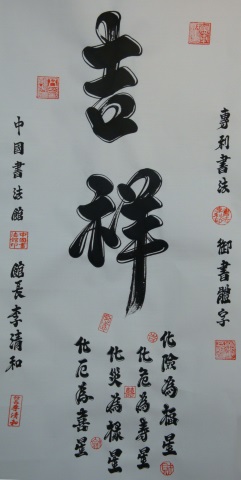 專利書法 御書體字
吉祥
化險為福星
化危為壽星
化災為祿星
化厄為喜星
中國書法館 館長李清和